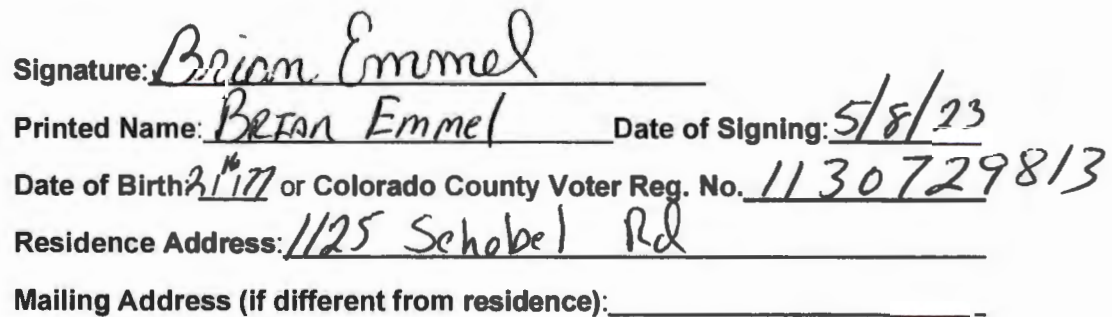 Signature: Brian Emmel
Printed Name: BRIAN Emmel Date of Signing: 5/8/23
Date of Birth 2/16/77 or Colorado County Voter Reg. No. 1130729813
Residence Address: 1125 Schobel Rd
Mailing Address (if different from residence):